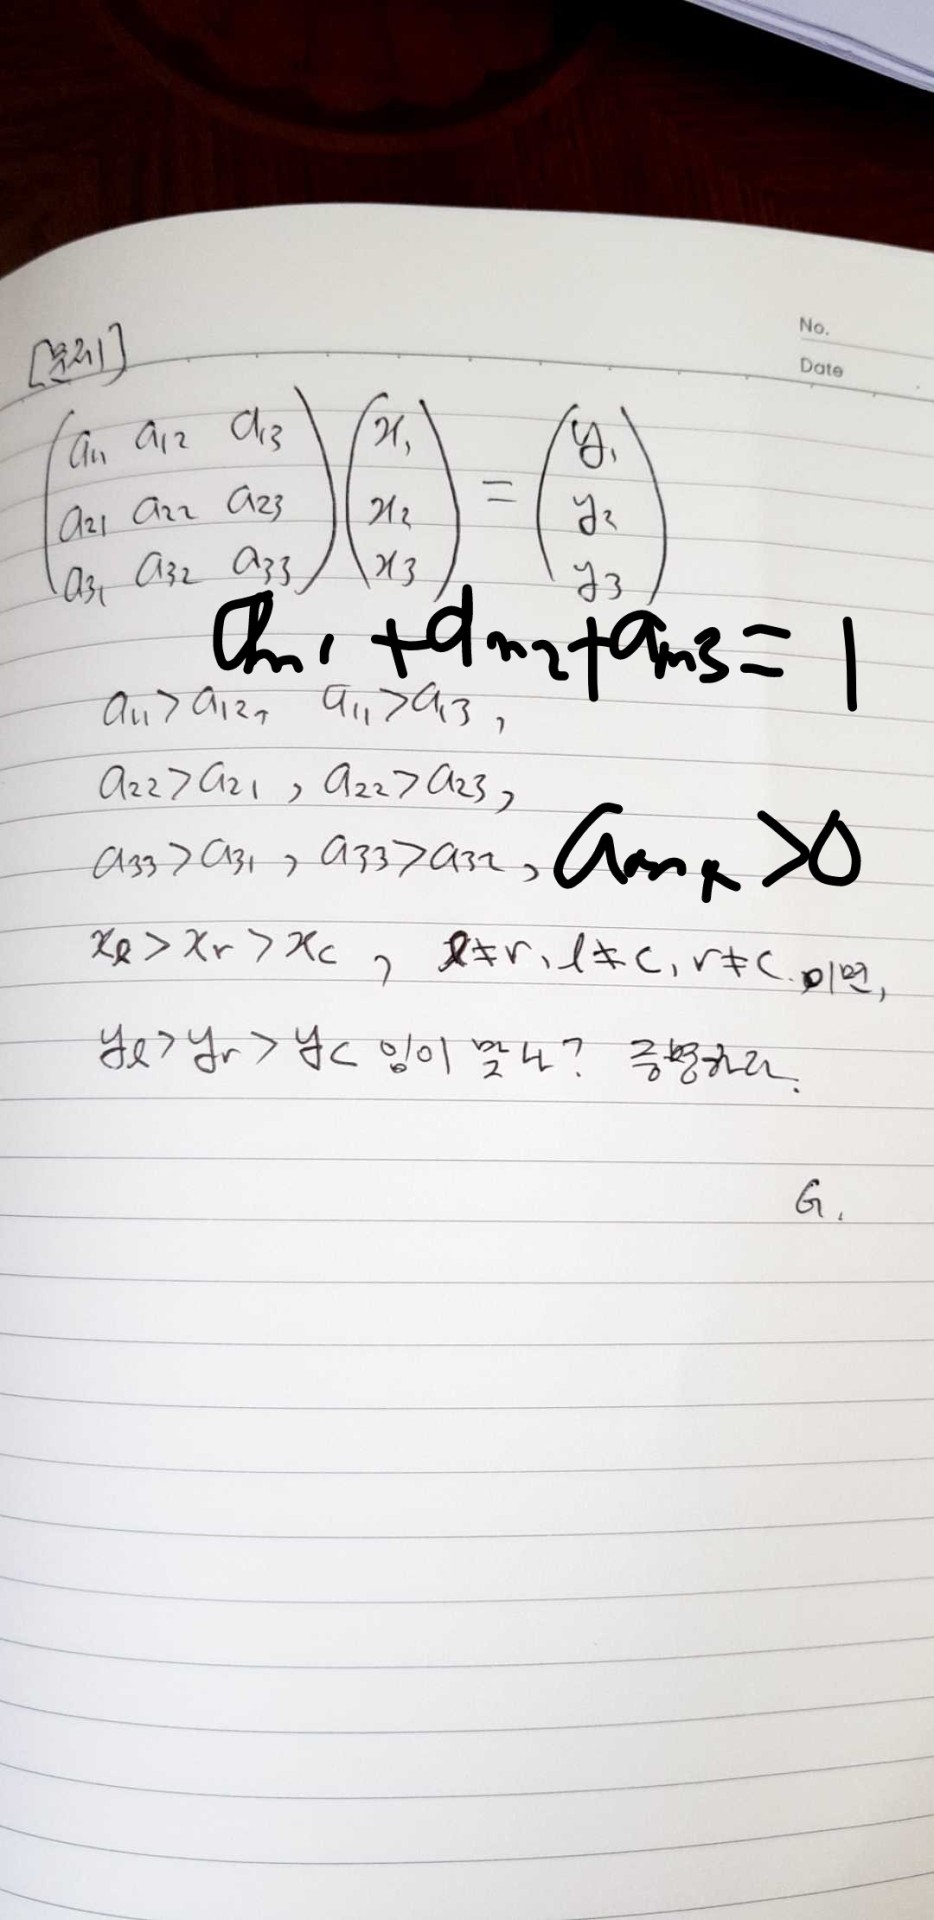 No.
Date
[문제]
(a11 a12 a13) (x1) = (y1)
(a21 a22 a23) (x2) (y2)
(a31 a32 a33) (x3) (y3)
am1 + am2 + am3 = 1
a11 > a12, a11 > a13,
a22 > a21, a22 > a23,
a33 > a31, a33 > a32, a > 0
xl > xr > xc, l ≠ r, l ≠ c, r ≠ c. 이면,
yl > yr > yc 임이 맞나? 증명하라.
G.